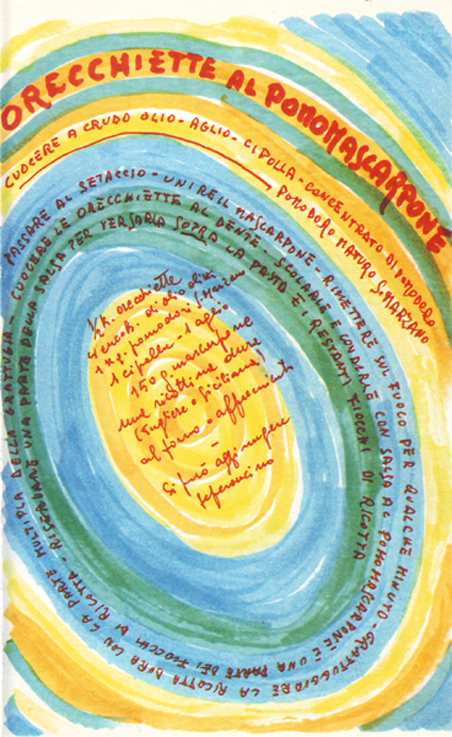 ORECCHIETTE AL POMOMASCARPONE
CUOCERE A CRUDO OLIO - AGLIO - CIPOLLA - CONCENTRATO DI POMODORO
POMODORO MATURO S. MARZANO
PASSARE AL SETACCIO - UNIRE IL MASCARPONE - RIMETTERE SUL FUOCO PER QUALCHE MINUTO - GRATTUGGIARE LA RICOTTA DURA CON LA PARTE MULTIPLA DELLA GRATTUGIA
CUOCERE LE ORECCHIETTE AL DENTE - SCOLARLE E CONDIRLE CON SALSA AL POMOMASCARPONE E UNA PARTE DEI FIOCCHI DI RICOTTA - RISERVARE UNA PARTE DELLA SALSA PER VERSARLA SOPRA LA PASTA E I RESTANTI FIOCCHI DI RICOTTA
1/2 K. orecchiette
4 cucch. di olio oliva
1 Kg. pomodori S. Marzano
1 cipolla - 1 aglio
150 g mascarpone
una ricottina dura
(Pugliese o Siciliana)
al forno o affumicata
-
Si può aggiungere
peperoncino